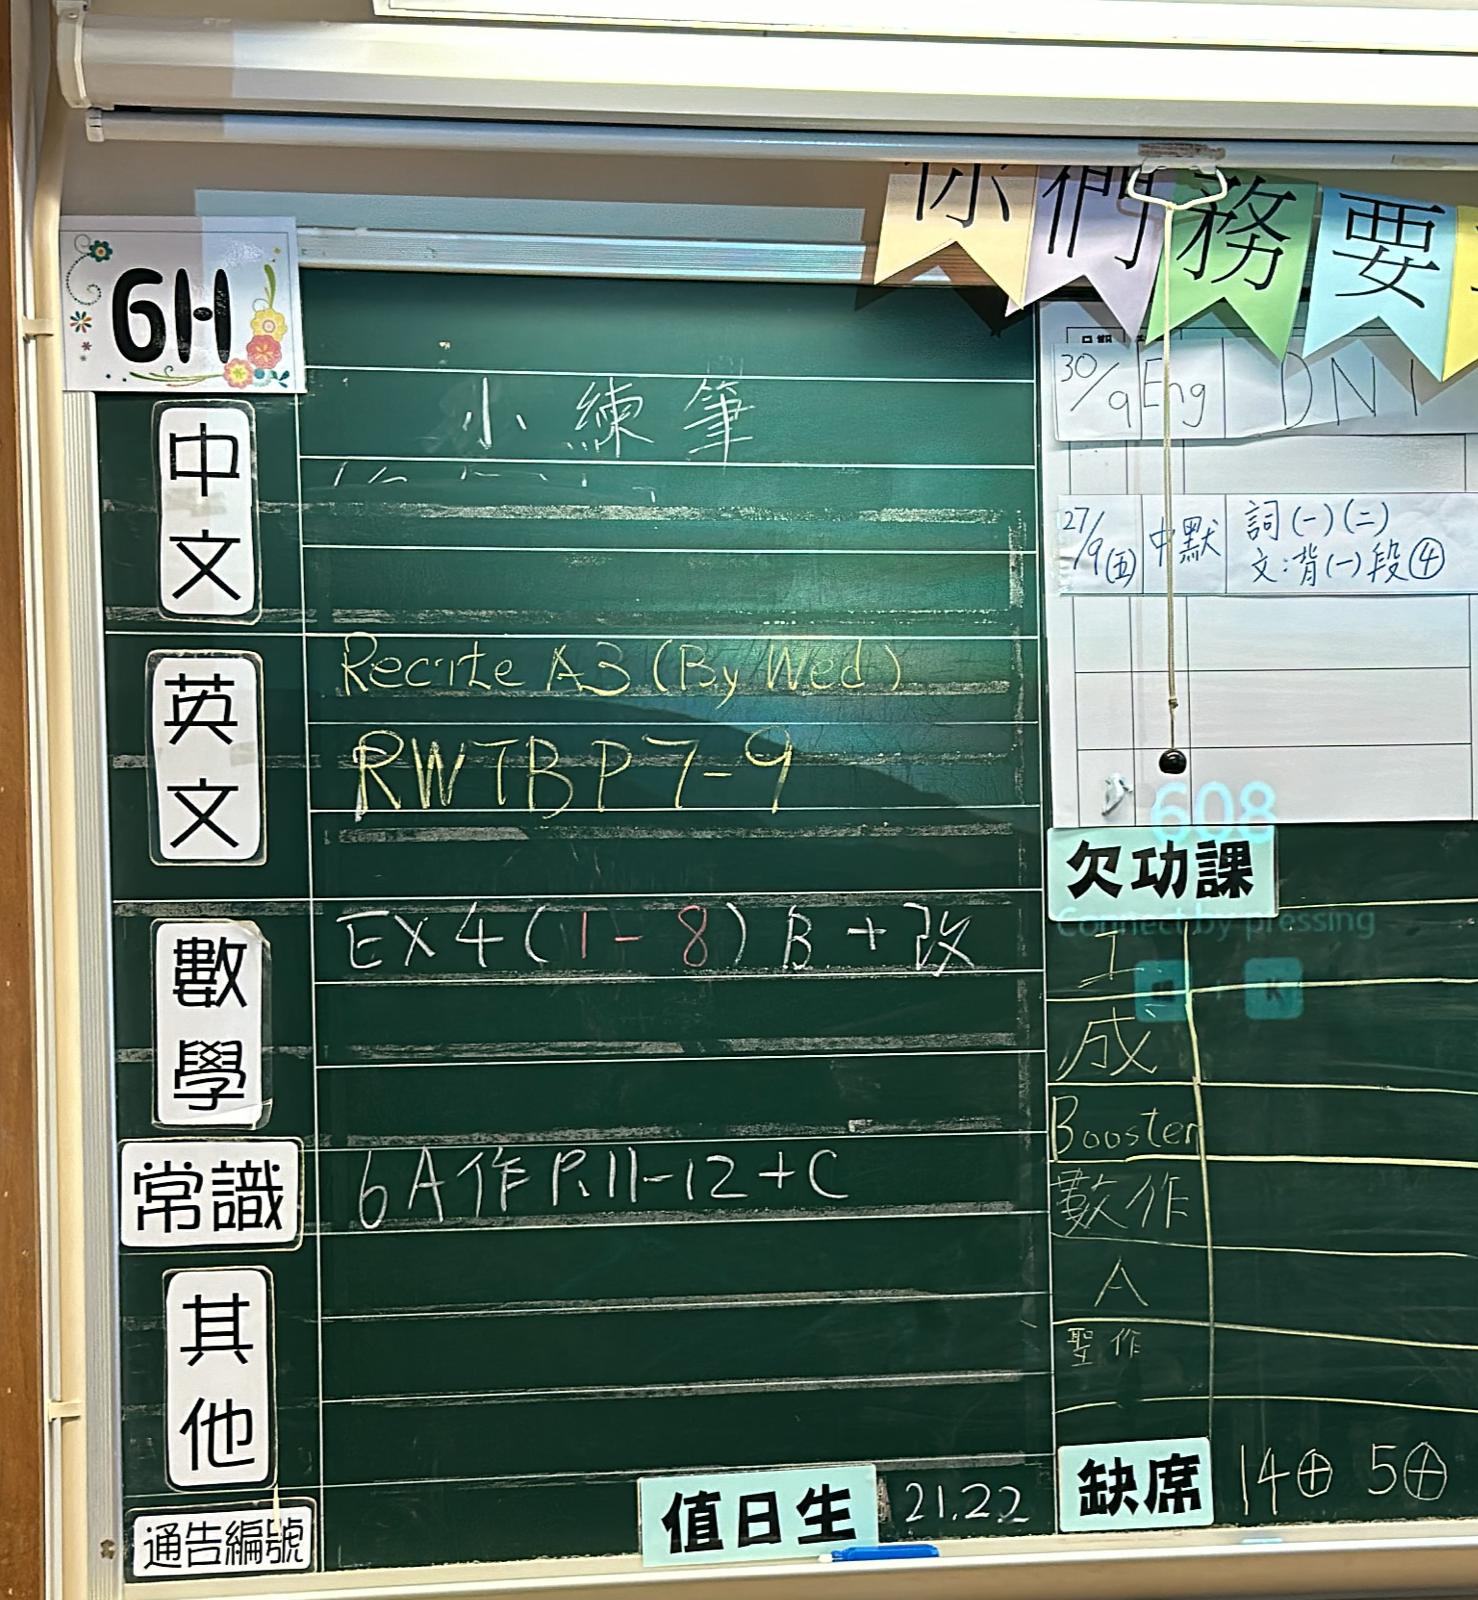 你們務要
6H
中文
小練筆
英文
Recite A3 (By Wed)
RWTB P7-9
數學
EX4(1-8) B + 改
常識
6A作 P.11-12+C
其他
通告編號
值日生 21.22
30/9 Eng DN1
27/9(五) 中默 詞(一)(二)
文:背(一)段④
608
欠功課
Connect by pressing
K
工
成
Booster
數作
A
聖作
缺席 14⊕ 5⊕